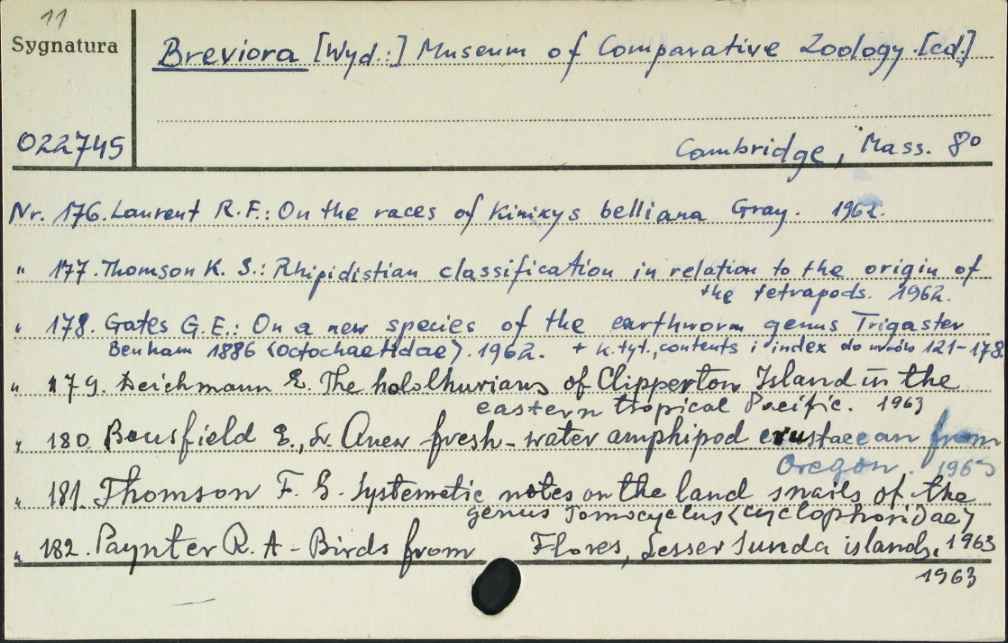 11
Sygnatura
Breviora [Wyd.:] Museum of Comparative Zoology.[ed.]
022745
Cambridge, Mass. 8o
Nr. 176. Laurent R.F.: On the races of Kinixys belliana Gray. 1962.
" 177. Thomson K. S.: Rhipidistian classification in relation to the origin of
the tetrapods. 1962.
" 178. Gates G.E.: On a new species of the earthworm genus Trigaster
Benham 1886 (Octochaetidae). 1962. + k.tyt., contents i index do nrów 121-178.
" 179. Deichmann E. The holothurians of Clipperton Island in the
eastern tropical Pacific. 1963
" 180. Bousfield E., A new fresh-water amphipod crustacean from
Oregon. 1963
" 181. Thomson F. G. Systematic notes on the land snails of the
genus Tomocyclus (Cyclophoridae)
" 182. Paynter R. A - Birds from Flores, Lesser Sunda islands. 1963
1963